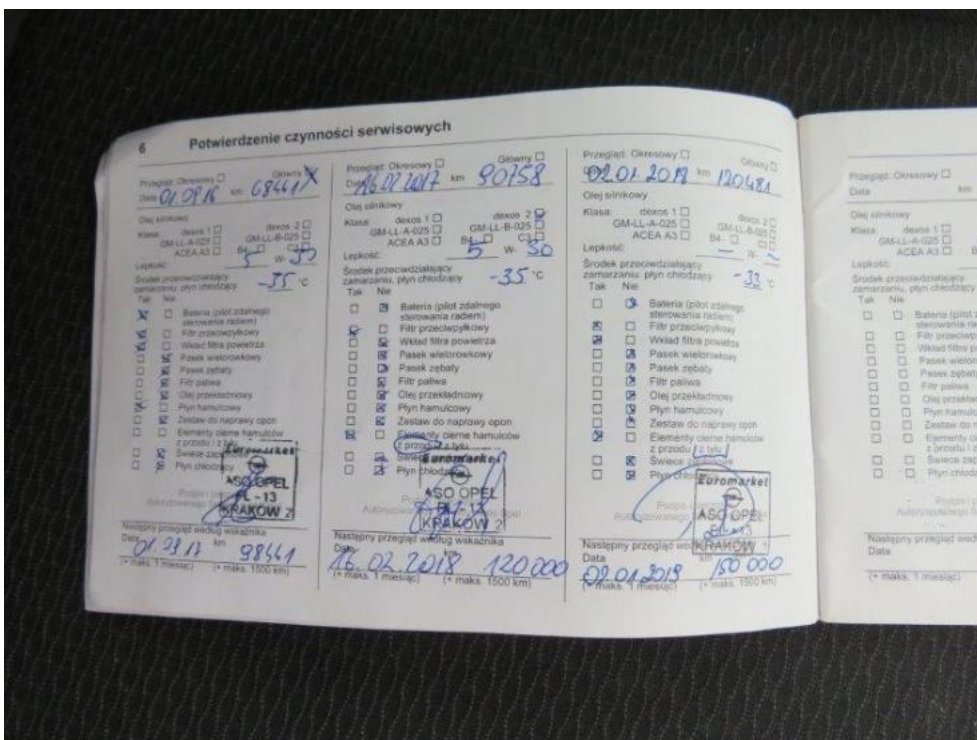 6 Potwierdzenie czynności serwisowych
Przegląd: Okresowy Główny
Data 01.09.16 km 68441
Olej silnikowy
Klasa: dexos 1 dexos 2
GM-LL-A-025 GM-LL-B-025
ACEA A3 B4- C3
Lepkość: 5 W- 30
Środek przeciwdziałający
zamarzaniu, płyn chłodzący -35 °C
Tak Nie
Bateria (pilot zdalnego
sterowania radiem)
Filtr przeciwpyłkowy
Wkład filtra powietrza
Pasek wielorowkowy
Pasek zębaty
Filtr paliwa
Olej przekładniowy
Płyn hamulcowy
Zestaw do naprawy opon
Elementy cierne hamulców
z przodu i z tyłu
Świece
Płyn chłodzący
Euromarket
ASO OPEL
PL-13
KRAKÓW 2
Następny przegląd według wskaźnika
Data 01.09.17 km 98441
(+ maks. 1 miesiąc) (+ maks. 1500 km)
Przegląd: Okresowy Główny
Data 16.02.2017 km 90758
Olej silnikowy
Klasa: dexos 1 dexos 2
GM-LL-A-025 GM-LL-B-025
ACEA A3 B4- C3
Lepkość: 5 W- 30
Środek przeciwdziałający
zamarzaniu, płyn chłodzący -35 °C
Tak Nie
Bateria (pilot zdalnego
sterowania radiem)
Filtr przeciwpyłkowy
Wkład filtra powietrza
Pasek wielorowkowy
Pasek zębaty
Filtr paliwa
Olej przekładniowy
Płyn hamulcowy
Zestaw do naprawy opon
Elementy cierne hamulców
z przodu i z tyłu
Płyn
Euromarket
ASO OPEL
KRAKÓW 2
Następny przegląd według wskaźnika
Data km
16.02.2018 120 000
(+ maks. 1 miesiąc) (+ maks. 1500 km)
Przegląd: Okresowy Główny
02.01.2018 km 120481
Olej silnikowy
Klasa: dexos 1 dexos 2
GM-LL-A-025 GM-LL-B-025
ACEA A3 B4- C3
Lepkość: - W- ~
Środek przeciwdziałający
zamarzaniu, płyn chłodzący -33 °C
Tak Nie
Bateria (pilot zdalnego
sterowania radiem)
Filtr przeciwpyłkowy
Wkład filtra powietrza
Pasek wielorowkowy
Pasek zębaty
Filtr paliwa
Olej przekładniowy
Płyn hamulcowy
Zestaw do naprawy opon
Elementy cierne hamulców
z przodu i z tyłu
Świece zapłonowe
Płyn chłodzący
Euromarket
ASO OPEL
KRAKÓW
Następny przegląd
Data km
02.01.2019 150 000
(+ maks. 1 miesiąc) (+ maks. 1500 km)
Przegląd: Okresowy
Data km
Olej silnikowy
Klasa: dexos 1
GM-LL-A-025
ACEA A3
Lepkość:
Środek przeciwdziałający
zamarzaniu, płyn chłodzący
Tak Nie
Bateria (pilot
sterowania
Filtr
Wkład filtra
Pasek
Pasek
Filtr paliwa
Olej
Płyn
Zestaw do
Elementy
z przodu i
Świece
Płyn
Następny przegląd
Data
(+ maks. 1 miesiąc)